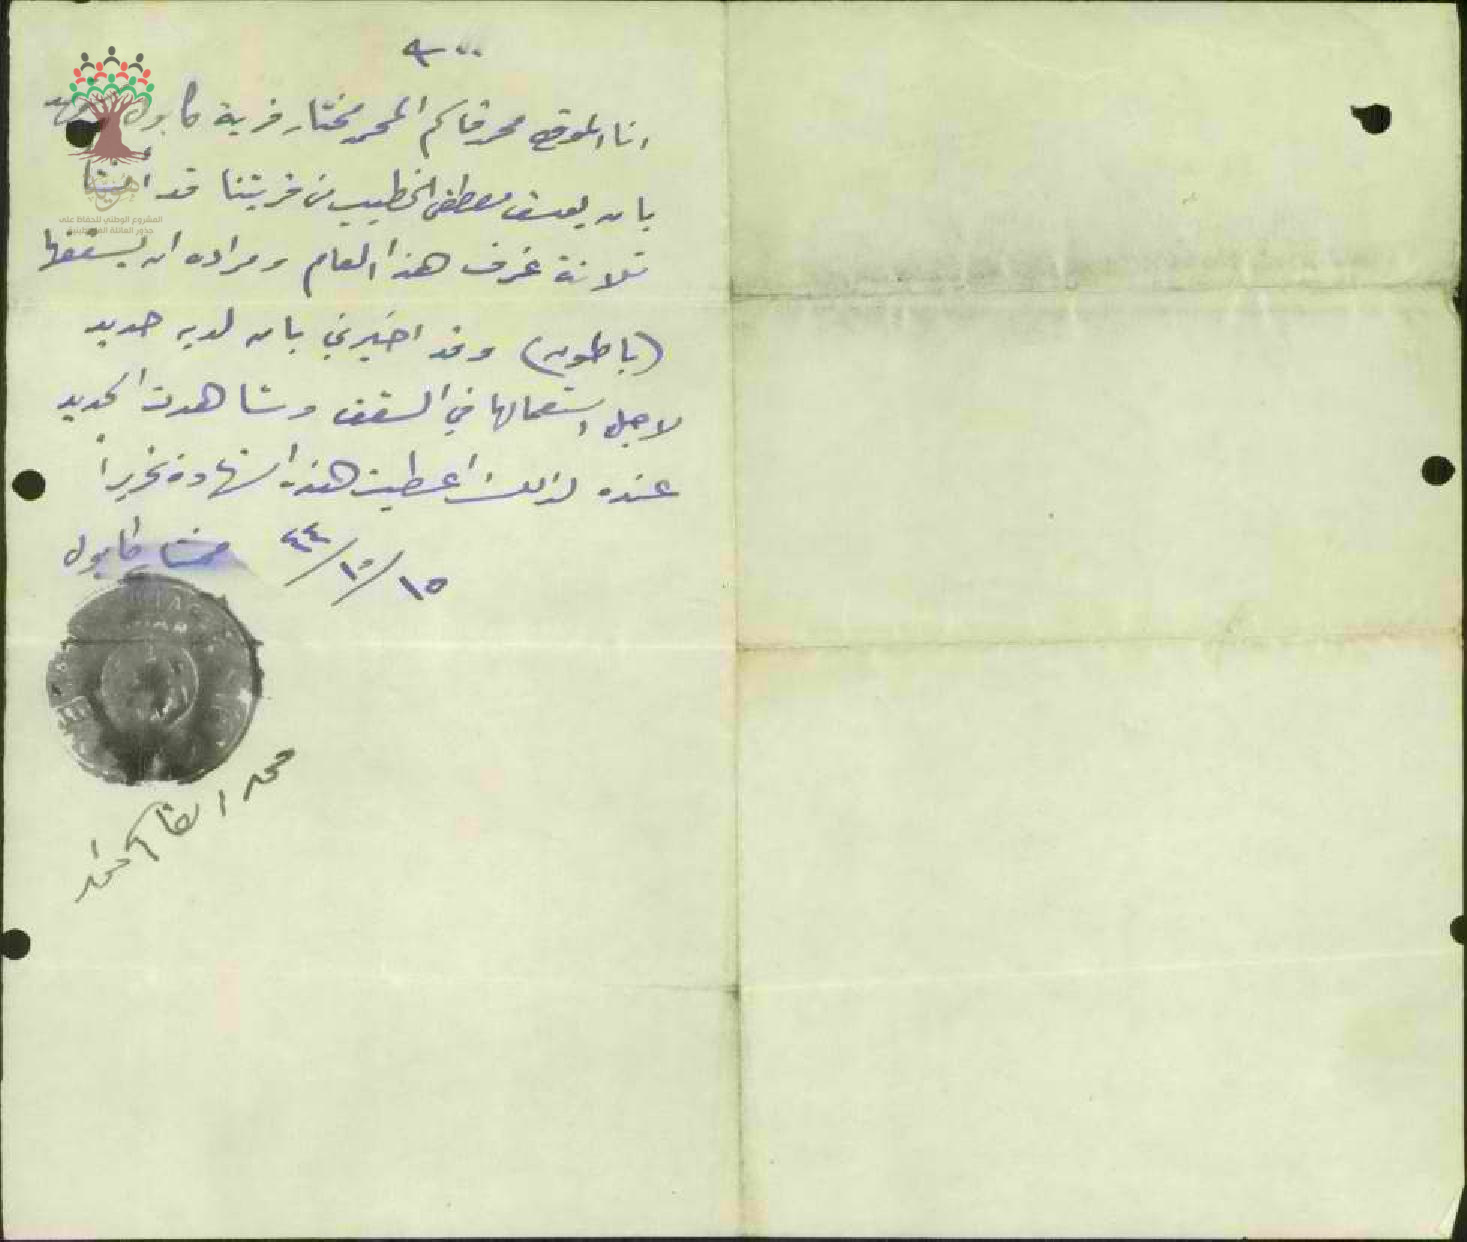 انا الموقع محمد قاسم المحمد مختار قرية كابول اشهد
بان يوسف مصطفى الخطيب من قريتنا قد أنشأ
ثلاثة غرف هذا العام ومراده ان يسقفها
(باطون) وقد اخبرني بان لديه حديد
لاجل استعمالها في السقف وشاهدت الحديد
عنده لذلك اعطيت هذه الشهادة تحريراً
١٥/١٠/٤٤ مختار كابول
محمد القاسم
المشروع الوطني للحفاظ على
جذور العائلة الفلسطينية